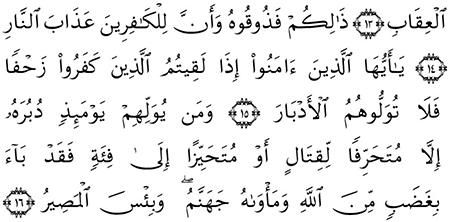 ٱلْعِقَابِ ﴿١٣﴾ ذَٰلِكُمْ فَذُوقُوهُ وَأَنَّ لِلْكَـٰفِرِينَ عَذَابَ ٱلنَّارِ
﴿١٤﴾ يَـٰٓأَيُّهَا ٱلَّذِينَ ءَامَنُوٓا۟ إِذَا لَقِيتُمُ ٱلَّذِينَ كَفَرُوا۟ زَحْفًا
فَلَا تُوَلُّوهُمُ ٱلْأَدْبَارَ ﴿١٥﴾ وَمَن يُوَلِّهِمْ يَوْمَئِذٍ دُبُرَهُۥٓ
إِلَّا مُتَحَرِّفًا لِّقِتَالٍ أَوْ مُتَحَيِّزًا إِلَىٰ فِئَةٍ فَقَدْ بَآءَ
بِغَضَبٍ مِّنَ ٱللَّهِ وَمَأْوَىٰهُ جَهَنَّمُ ۖ وَبِئْسَ ٱلْمَصِيرُ ﴿١٦﴾